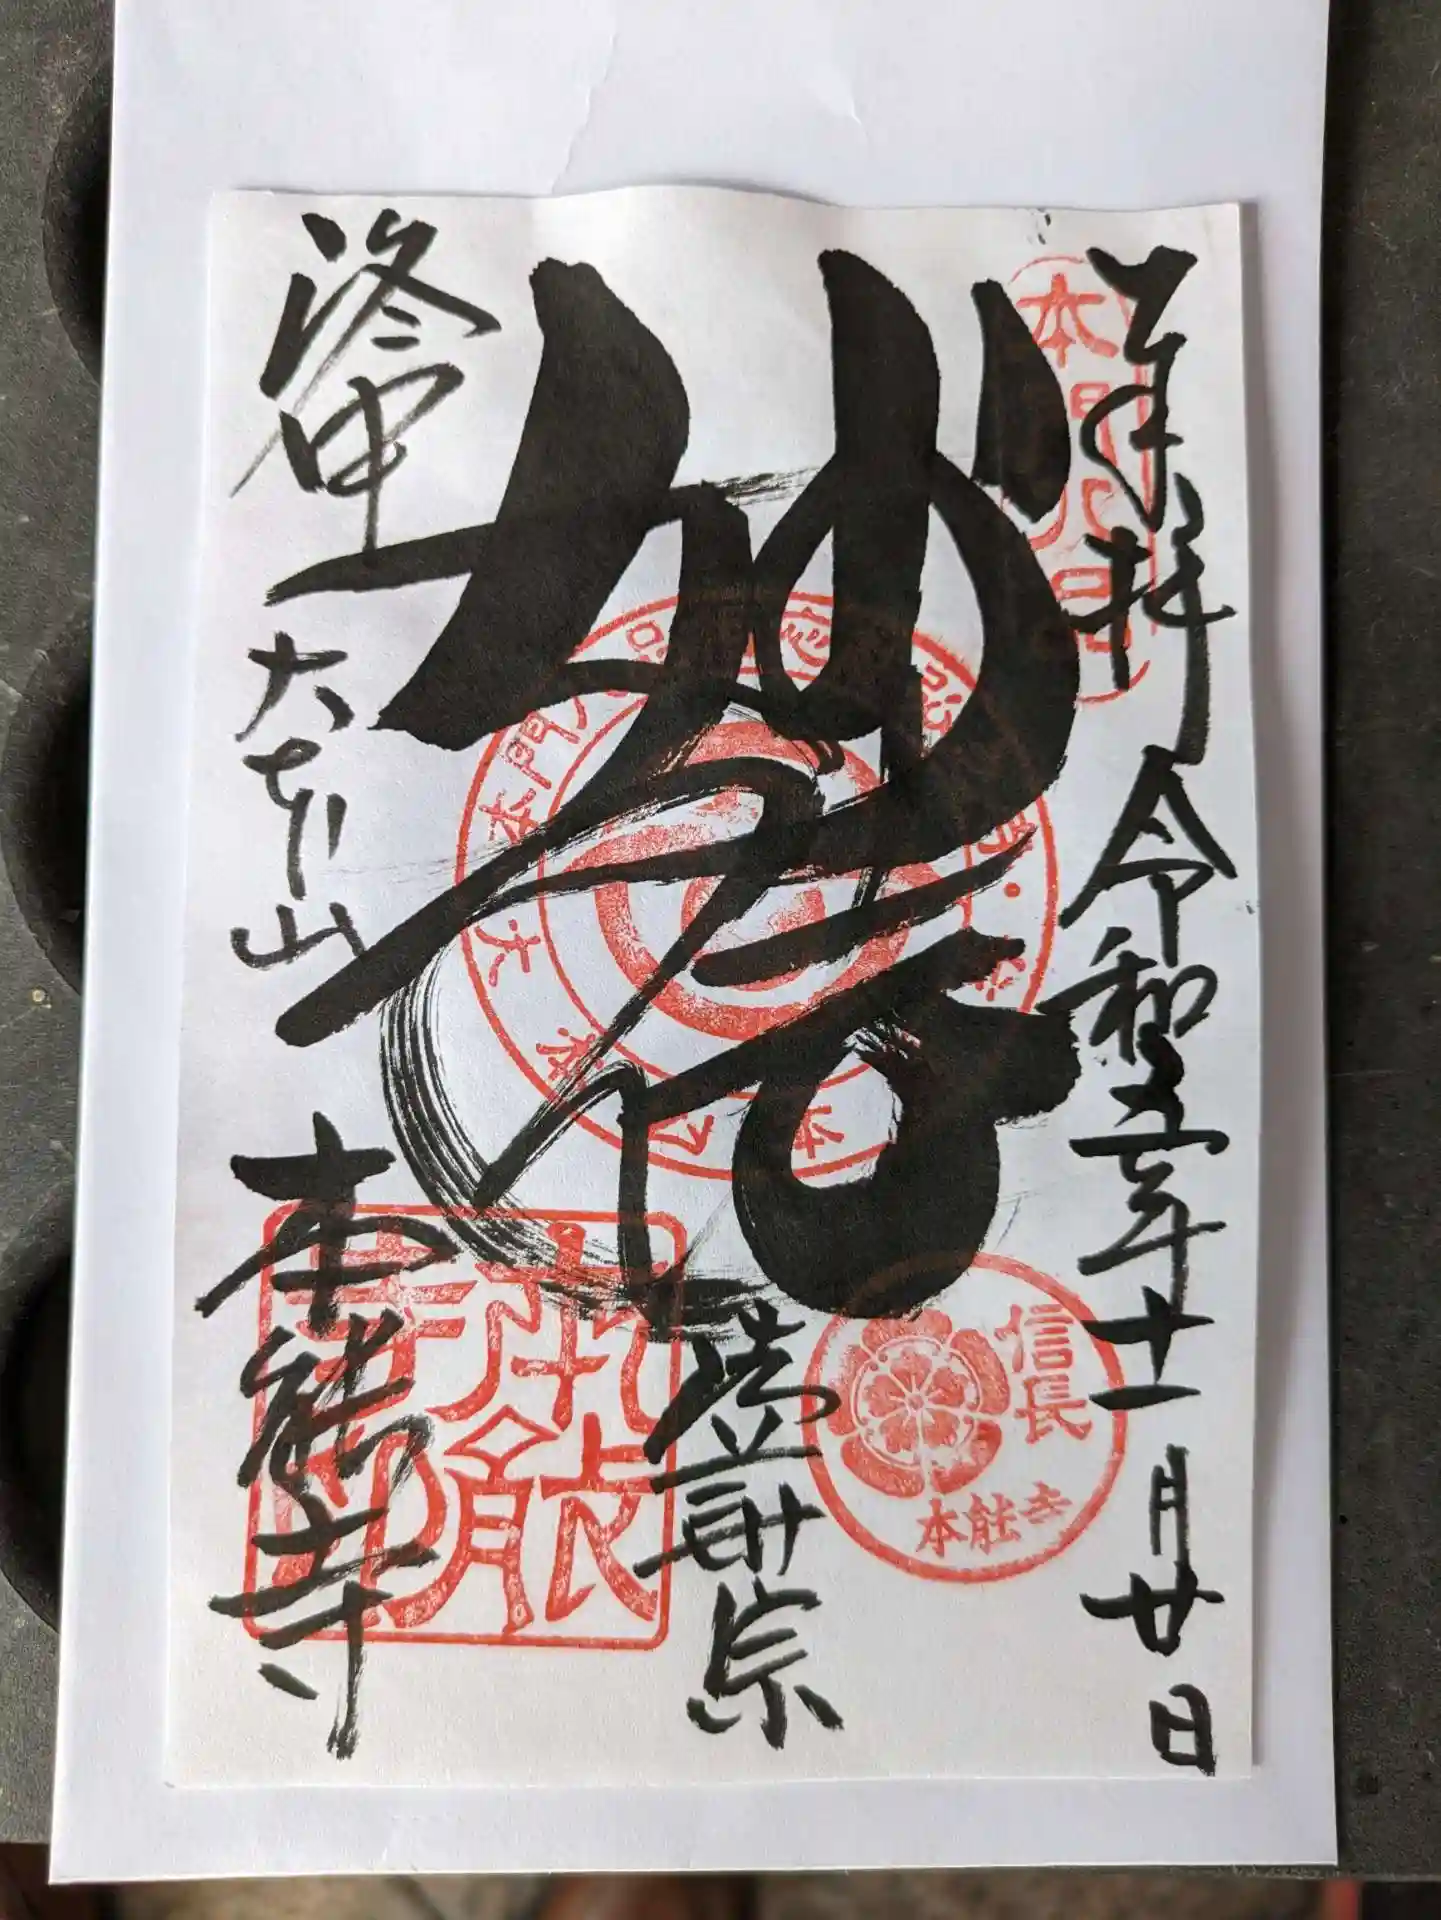 奉拝 令和五年十一月廿日
本門八品
妙信
法華宗
信長
本能寺
洛中 大本山 本能寺
本能寺印